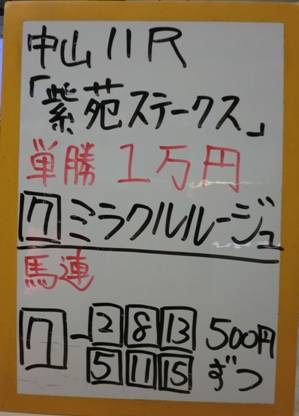 中山11R
「紫苑ステークス」
単勝 1万円
7 ミラクルルージュ
馬連
7-2 8 13 500円
5 11 15 ずつ